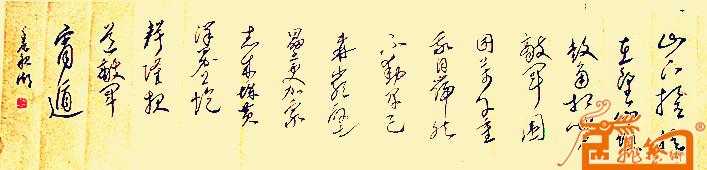 山下旌旗
在望山头
鼓角相闻
敌军围
困万千重
我自岿然
不动早已
森严壁垒
更加众
志成城黄
洋界上炮
声隆报
道敌军
宵遁